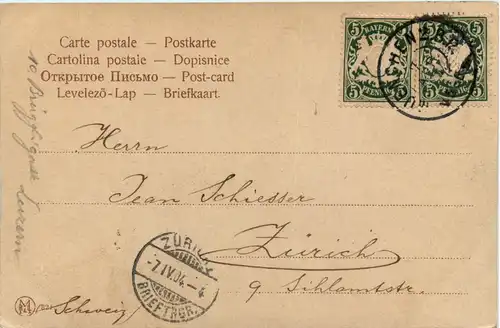 Carte postale — Postkarte
Cartolina postale — Dopisnice
Открытое Письмо — Post-card
Levelező-Lap — Briefkaart.
BAYERN
5 5
PFENNIG
5 5
PFENNIG
Herrn
Jean Schiesser
Zürich
9 Sihlamtstr.
Schweiz
ZÜRICH
-7.IV.04.-4
BRIEFTRGR.
M
Luzern